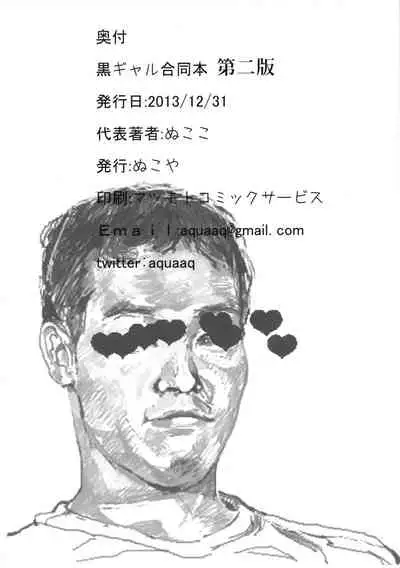 奥付
黒ギャル合同本 第二版
発行日:2013/12/31
代表著者:ぬここ
発行:ぬこや
印刷:マツモトコミックサービス
Ｅｍａｉｌ:aquaaq@gmail.com
twitter:aquaaq